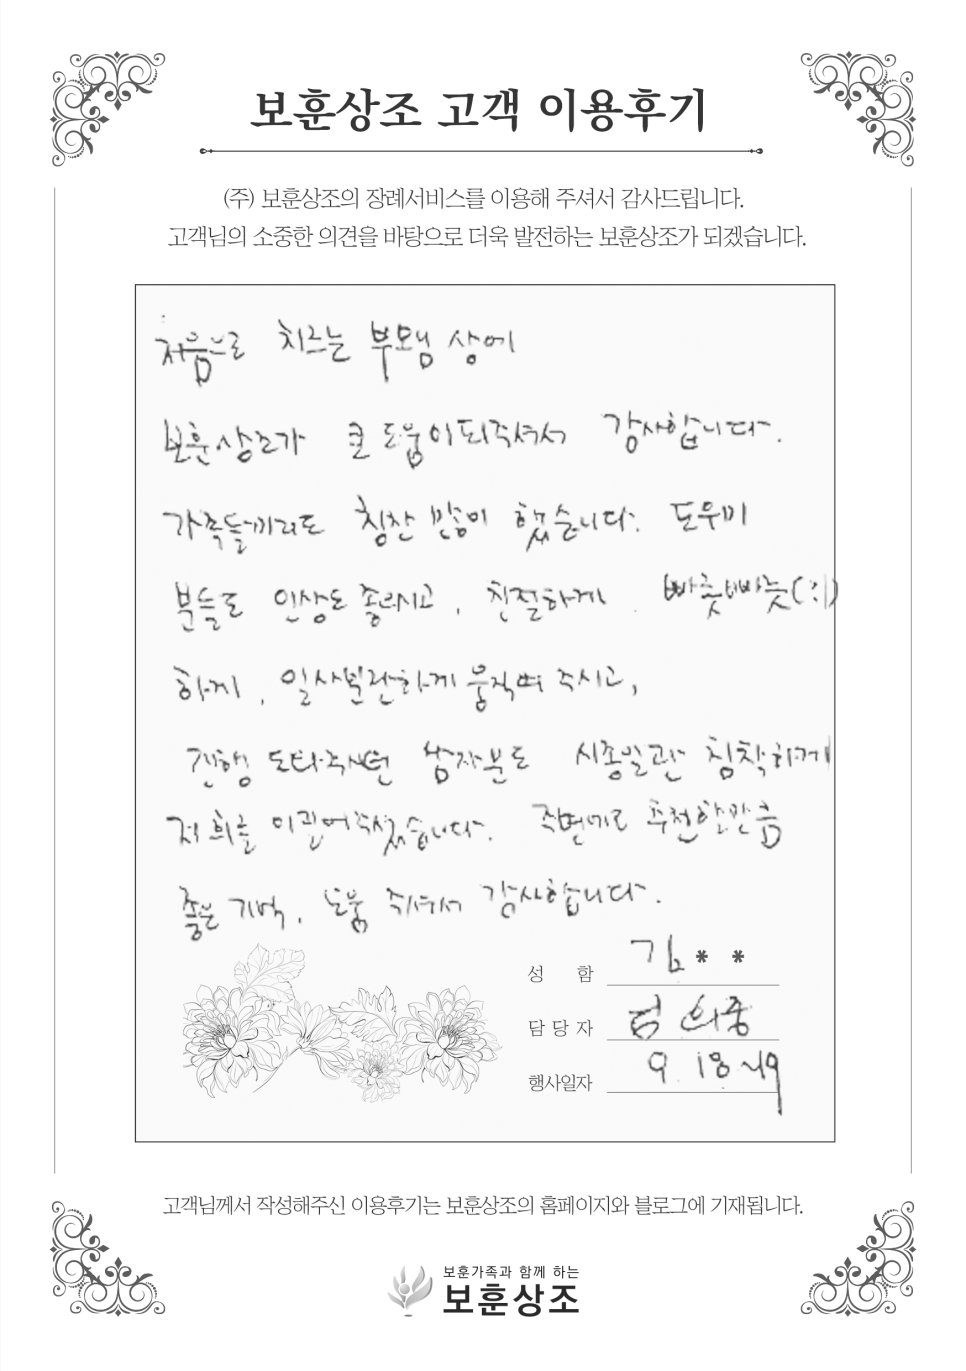 보훈상조 고객 이용후기
(주) 보훈상조의 장례서비스를 이용해 주셔서 감사드립니다.
고객님의 소중한 의견을 바탕으로 더욱 발전하는 보훈상조가 되겠습니다.
처음으로 치르는 부모님 상에
보훈상조가 큰 도움이되주셔서 감사합니다.
가족들끼리도 칭찬 많이 했습니다. 도우미
분들도 인상도 좋으시고, 친절하게, 빠릿빠릿(?)
하게, 일사불란하게 움직여 주시고,
진행 도와주시던 담당자분도 시종일관 침착하게
저희를 이끌어주셨습니다. 주변에도 추천할만큼
좋은 기억, 도움 주셔서 감사합니다.
성 함 김**
담당자 희중
행사일자 9. 18~19
고객님께서 작성해주신 이용후기는 보훈상조의 홈페이지와 블로그에 기재됩니다.
보훈가족과 함께 하는
보훈상조